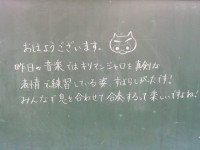 おはようございます。
昨日の音楽ではキリマンジャロを真剣な
表情で練習している姿、すばらしかったです!
みんなで息を合わせて合奏するって楽しいですよね!